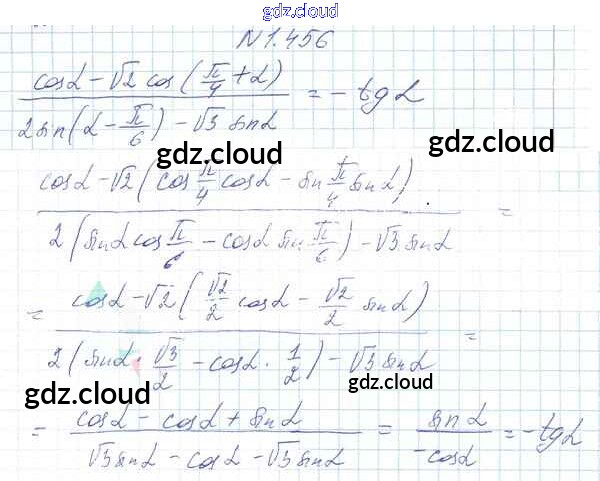 gdz.cloud
N 1.456
(cosα - √2 cos(π/4 + α)) / (2sin(α - π/6) - √3 sinα) = - tgα
gdz.cloud
gdz.cloud
(cosα - √2(cos π/4 cosα - sin π/4 sinα)) / (2(sinα cos π/6 - cosα sin π/6) - √3 sinα) =
= (cosα - √2(√2/2 cosα - √2/2 sinα)) / (2(sinα · √3/2 - cosα · 1/2) - √3 sinα) =
gdz.cloud
gdz.cloud
= (cosα - cosα + sinα) / (√3 sinα - cosα - √3 sinα) = sinα / -cosα = - tgα